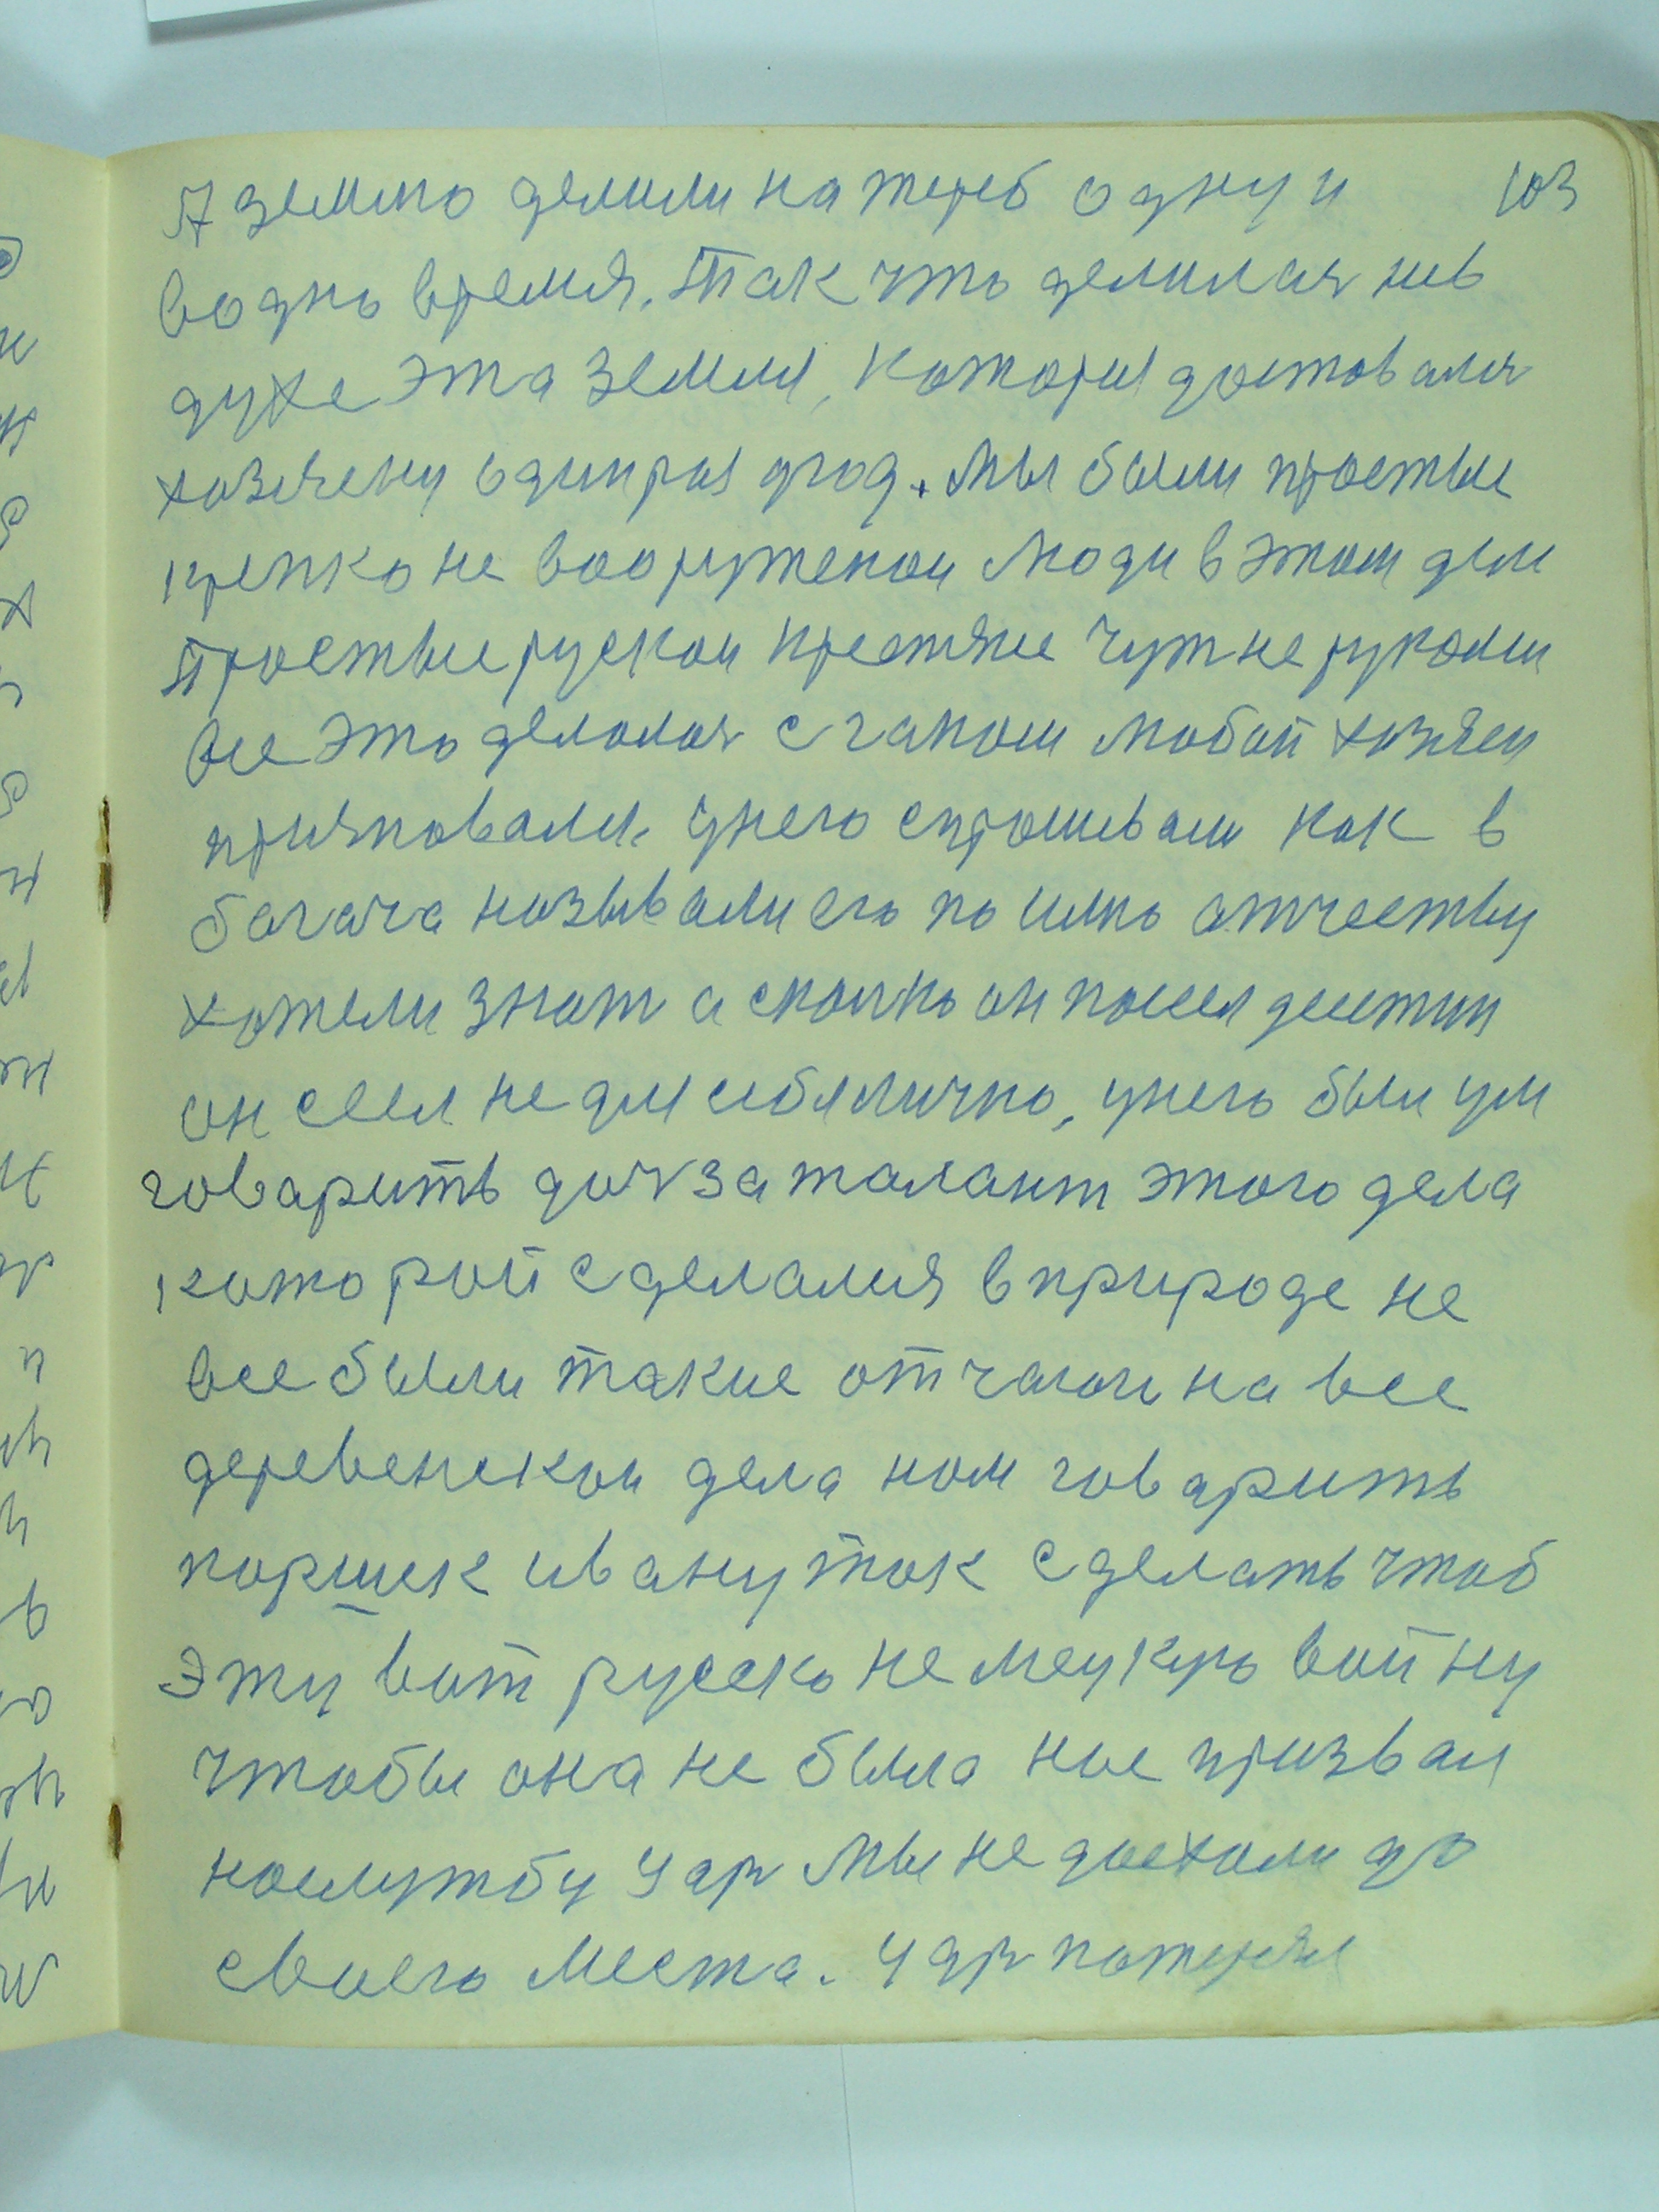 А землю делили на жереб одну и 103
водно время. Так что делилася не в
духе эта земля, которая доставалася
хозяену один раз у год. Мы были простые
крепко не вооруженои люди в этом деле
Простые рускои крестяне чут не руками
все это делалося с гапом любой хозяен
признавали. Унего спрошивали как в
богача называли его по имю отчеству
хотели знат а сколько он посеял десятин
он сеел не для себя лично, унего были ум
говарить дося за талант этого дела
которой сделался в природе не
все были такие отчаюи на все
деревенскои дела ном говарить
поршек ивану так сделать чтоб
эту вот русско немецкую войну
чтобы она не была нас призвал
на службу царь мы не доехали до
своего места. Царь потерял